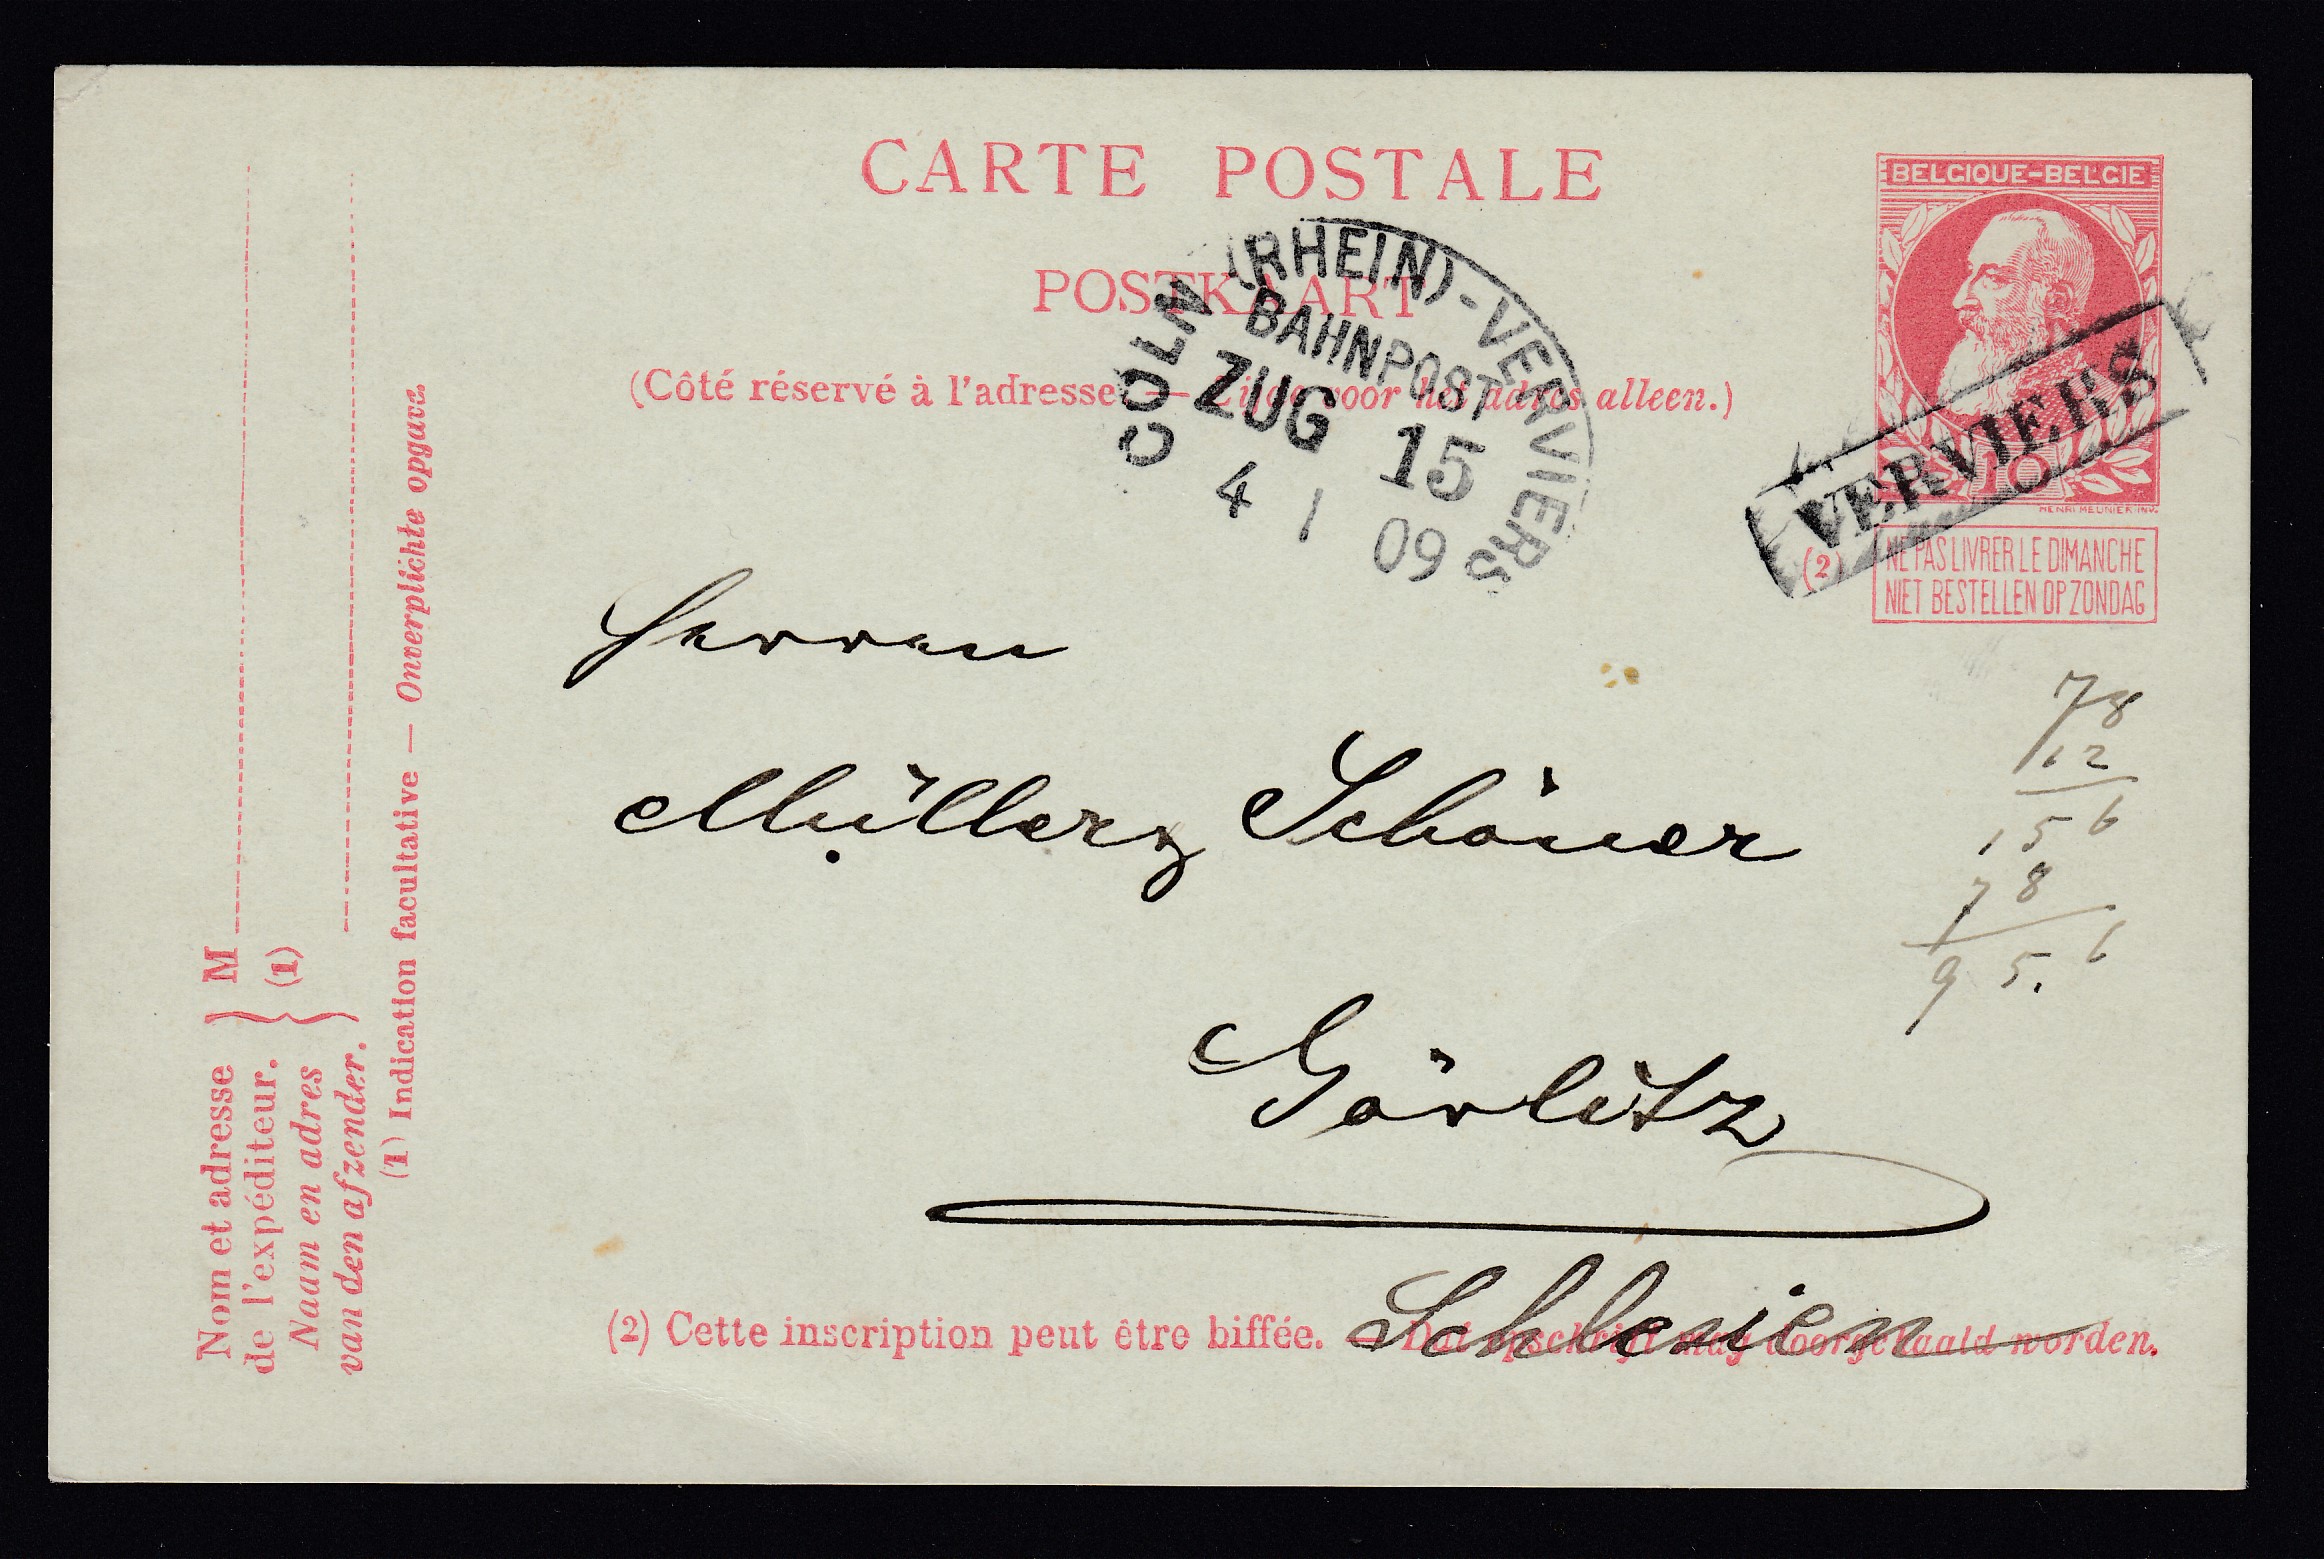 CARTE POSTALE
POSTKAART
(Côté réservé à l'adresse. — Zijde voor het adres alleen.)
BELGIQUE-BELGIE
10
HENRI MEUNIER INV.
(2)
NE PAS LIVRER LE DIMANCHE
NIET BESTELLEN OP ZONDAG
VERVIERS
CÖLN (RHEIN)-VERVIERS
BAHNPOST
ZUG 15
4 1 09
Herren
Müller & Schöner
Görlitz
Schlesien
78
12
156
78
95.6
(2) Cette inscription peut être biffée. — Dat opschrift mag doorgehaald worden.
Nom et adresse
de l'expéditeur.
Naam en adres
van den afzender.
M
(1)
(1) Indication facultative — Onverplichte opgave.